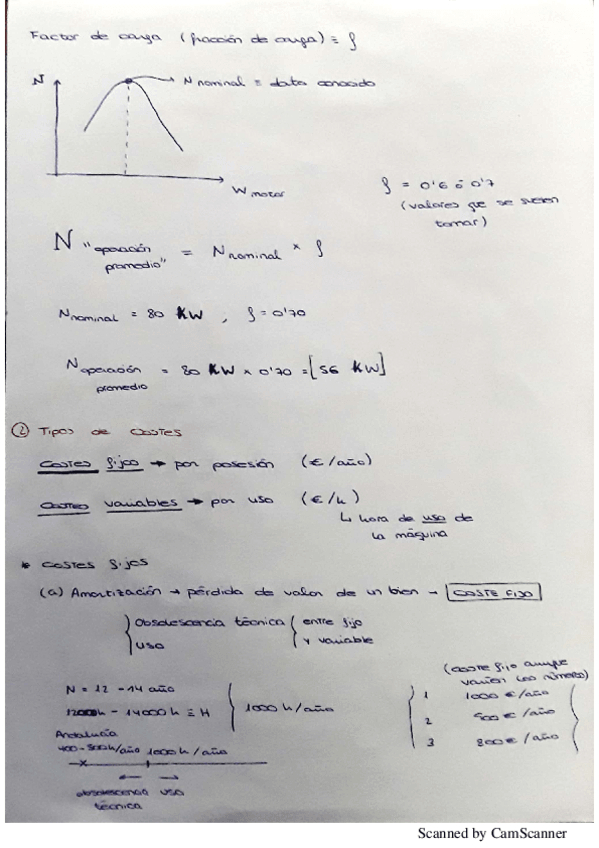 Factor de carga (fracción de carga) ≡ ƒ
N
N nominal = dato conocido
W motor
ƒ = 0'6 ó 0'7
(valores que se suelen
tomar)
N "operación promedio" = N nominal × ƒ
N nominal = 80 KW , ƒ = 0'70
N operación promedio = 80 KW × 0'70 = [56 KW]
② Tipos de costes
Costes fijos → por posesión (€/año)
Costes variables → por uso (€/h)
↳ hora de uso de
la máquina
* Costes fijos
(a) Amortización → pérdida de valor de un bien → COSTE FIJO
Obsolescencia técnica
uso
entre fijo
y variable
N = 12 - 14 año
12000h - 14000h ≡ H
1000 h/año
(coste fijo aunque
varíen los números)
1 1000 €/año
2 500 €/año
3 800 €/año
Andalucía
400 - 500h/año 1000h/año
obsolescencia
técnica
uso
Scanned by CamScanner